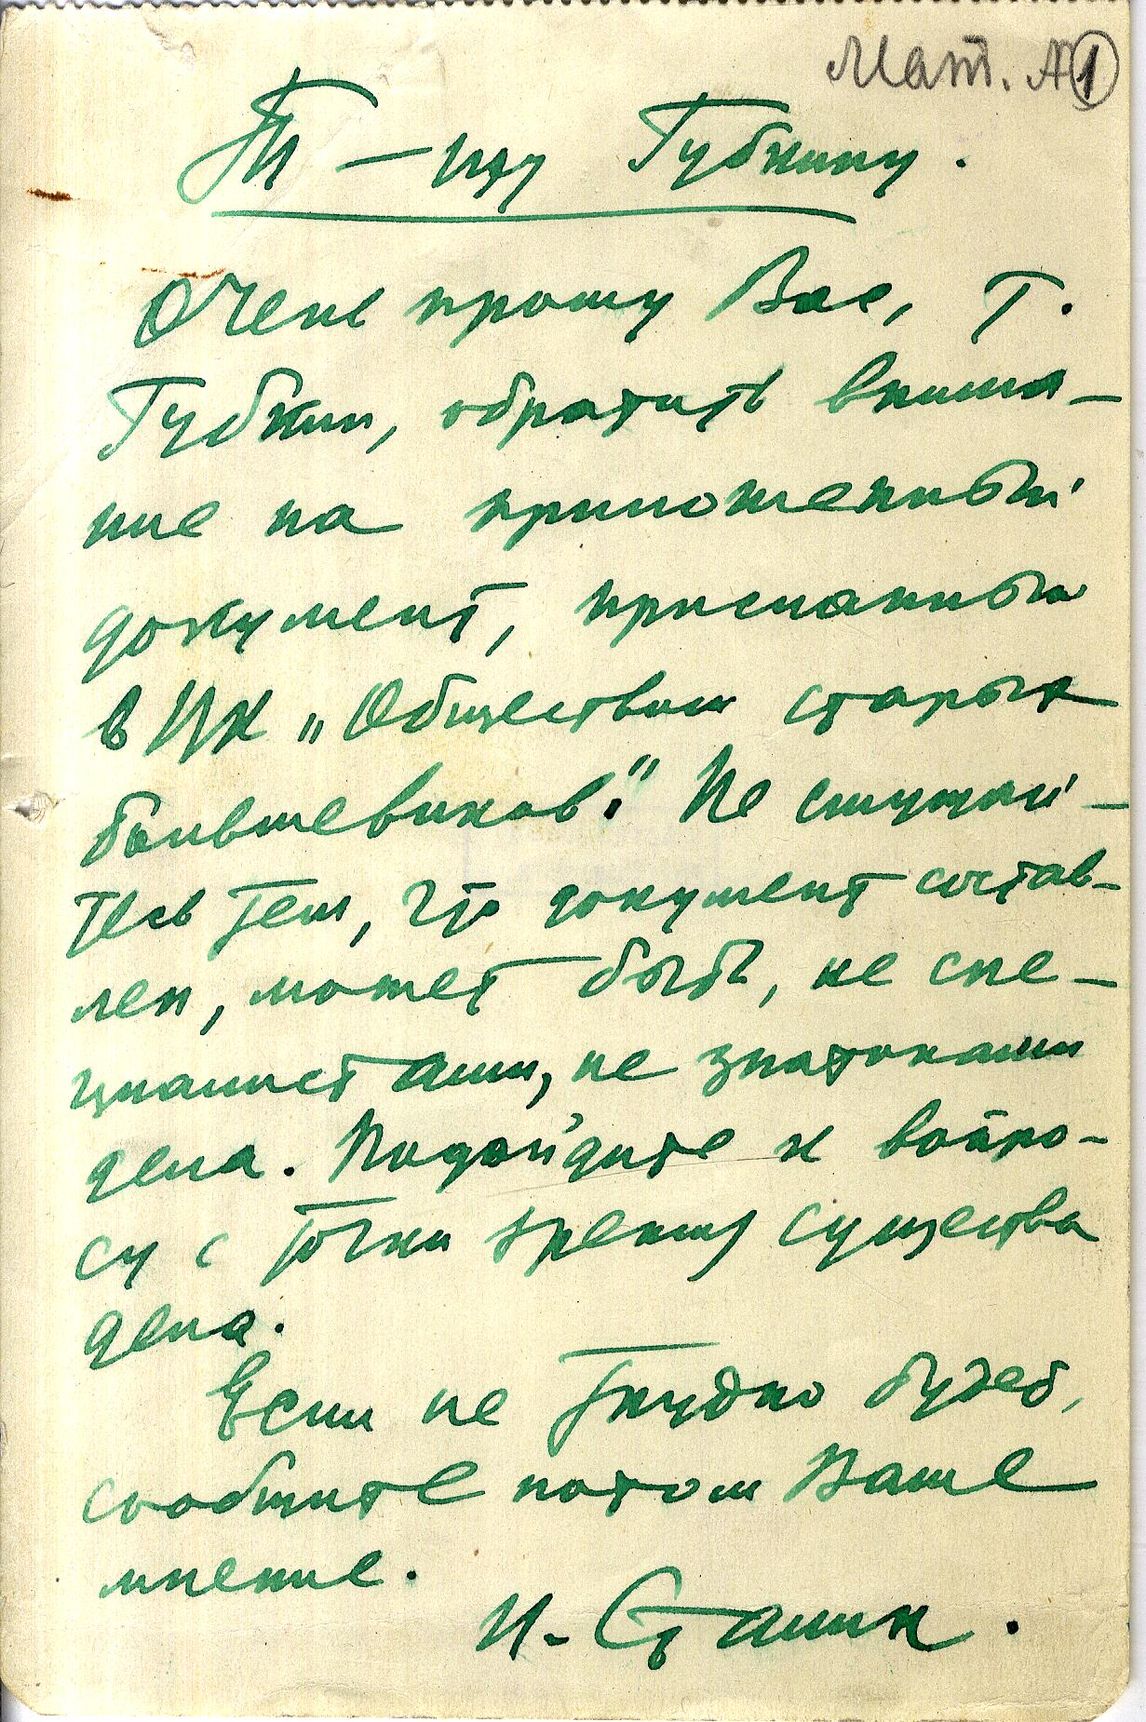 Мат. А 1
Т–щу Губкину.
Очень прошу Вас, т.
Губкин, обратить внима–
ние на приложенный
документ, присланный
в ЦК „Обществом старых
большевиков“. Не смущай–
тесь тем, что документ состав–
лен, может быть, не спе–
циалистами, не знатоками
дела. Подойдите к вопро–
су с точки зрения существа
дела.
Если не трудно будет,
сообщите потом Ваше
мнение.
И. Сталин.